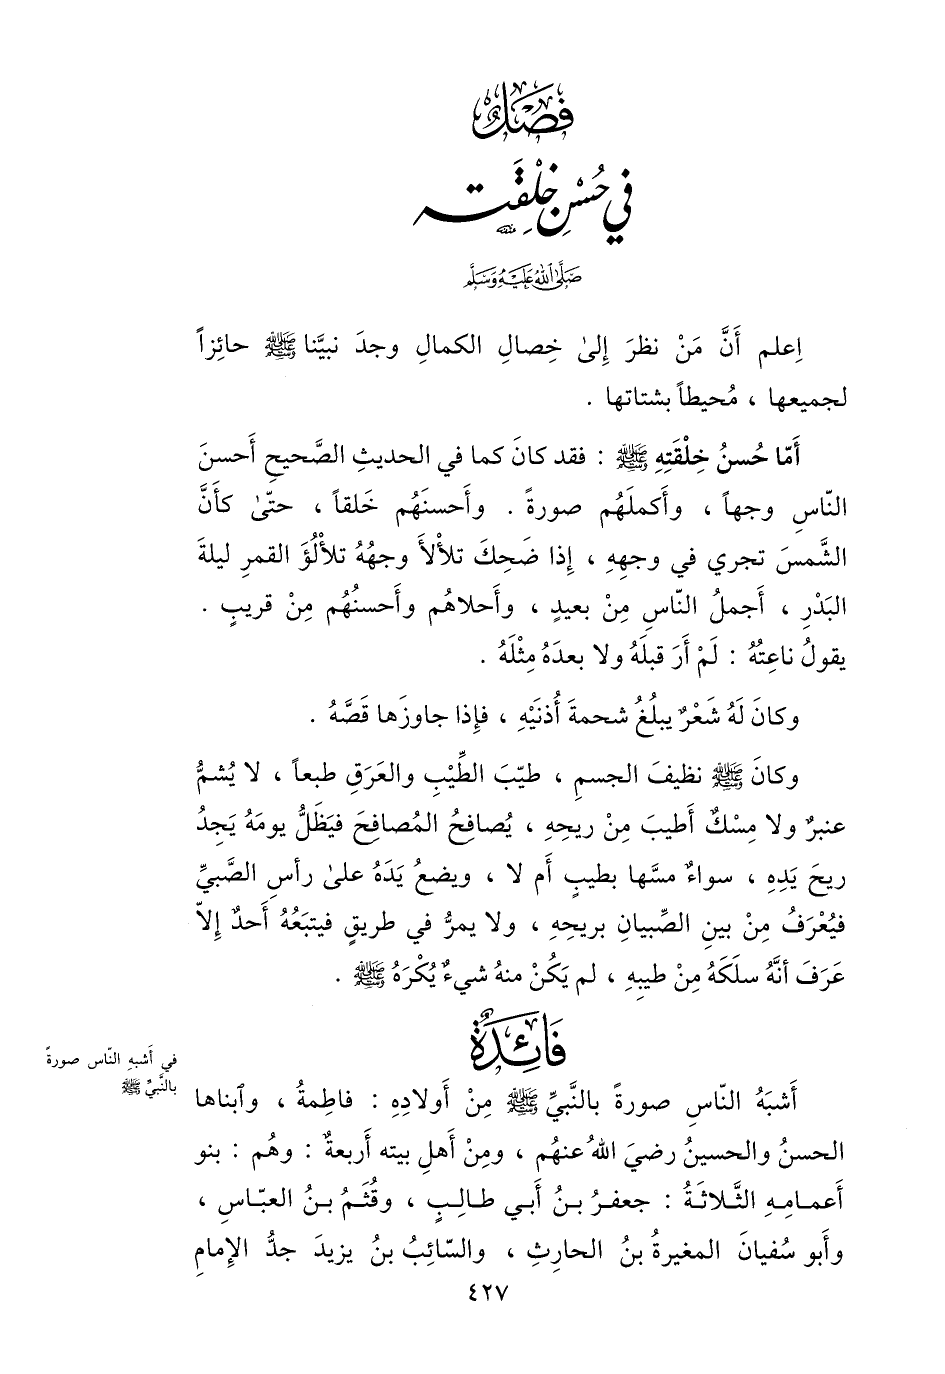 فَصْلٌ
في حُسْنِ خِلْقَتِهِ
صَلَّى اللهُ عَلَيْهِ وَسَلَّمَ
اِعلم أَنَّ مَنْ نظرَ إِلىٰ خِصالِ الكمالِ وجدَ نبيَّنا ﷺ حائِزاً
لجميعها ، مُحيطاً بشتاتها .
أَمّا حُسنُ خِلْقَتِهِ ﷺ : فقد كانَ كما في الحديثِ الصَّحيحِ أَحسنَ
النّاسِ وجهاً ، وأَكملَهُم صورةً . وأَحسنَهُم خَلقاً ، حتّىٰ كأَنَّ
الشَّمسَ تجري في وجهِهِ ، إِذا ضَحِكَ تلأْلأَ وجهُهُ تلأْلُؤَ القمرِ ليلةَ
البَدْرِ ، أَجملُ النّاسِ مِنْ بعيدٍ ، وأَحلاهُم وأَحسنُهُم مِنْ قريبٍ .
يقولُ ناعِتُهُ : لَمْ أَرَ قبلَهُ ولا بعدَهُ مِثْلَهُ .
وكانَ لَهُ شَعْرٌ يبلُغُ شحمةَ أُذنَيْهِ ، فإِذا جاوزَها قَصَّهُ .
وكانَ ﷺ نظيفَ الجسمِ ، طيّبَ الطِّيْبِ والعَرَقِ طبعاً ، لا يُشمُّ
عنبرٌ ولا مِسْكٌ أَطيبَ مِنْ ريحِهِ ، يُصافِحُ المُصافِحَ فيَظَلُّ يومَهُ يَجِدُ
ريحَ يَدِهِ ، سواءٌ مسَّها بطيبٍ أَم لا ، ويضعُ يَدَهُ علىٰ رأسِ الصَّبيِّ
فيُعْرَفُ مِنْ بينِ الصِّبيانِ بريحِهِ ، ولا يمرُّ في طريقٍ فيتبَعُهُ أَحدٌ إِلاّ
عَرَفَ أنَّهُ سلَكَهُ مِنْ طيبِهِ ، لم يَكُنْ منهُ شيءٌ يُكْرَهُ ﷺ .
فَائِدَةٌ
في أَشبهِ النّاس صورةً
بالنَّبيِّ ﷺ
أَشبَهُ النّاسِ صورةً بالنَّبيِّ ﷺ مِنْ أَولادِهِ : فاطِمةُ ، وٱبناها
الحسنُ والحسينُ رضيَ اللهُ عنهُم ، ومِنْ أَهلِ بيته أَربعةٌ : وهُم : بنو
أَعمامِهِ الثَّلاثَةُ : جعفرُ بنُ أَبي طالِبٍ ، وقُثَمُ بنُ العبّاسِ ،
وأَبو سُفيانَ المغيرةُ بنُ الحارِثِ ، والسّائِبُ بنُ يزيدَ جدُّ الإِمامِ
٤٢٧